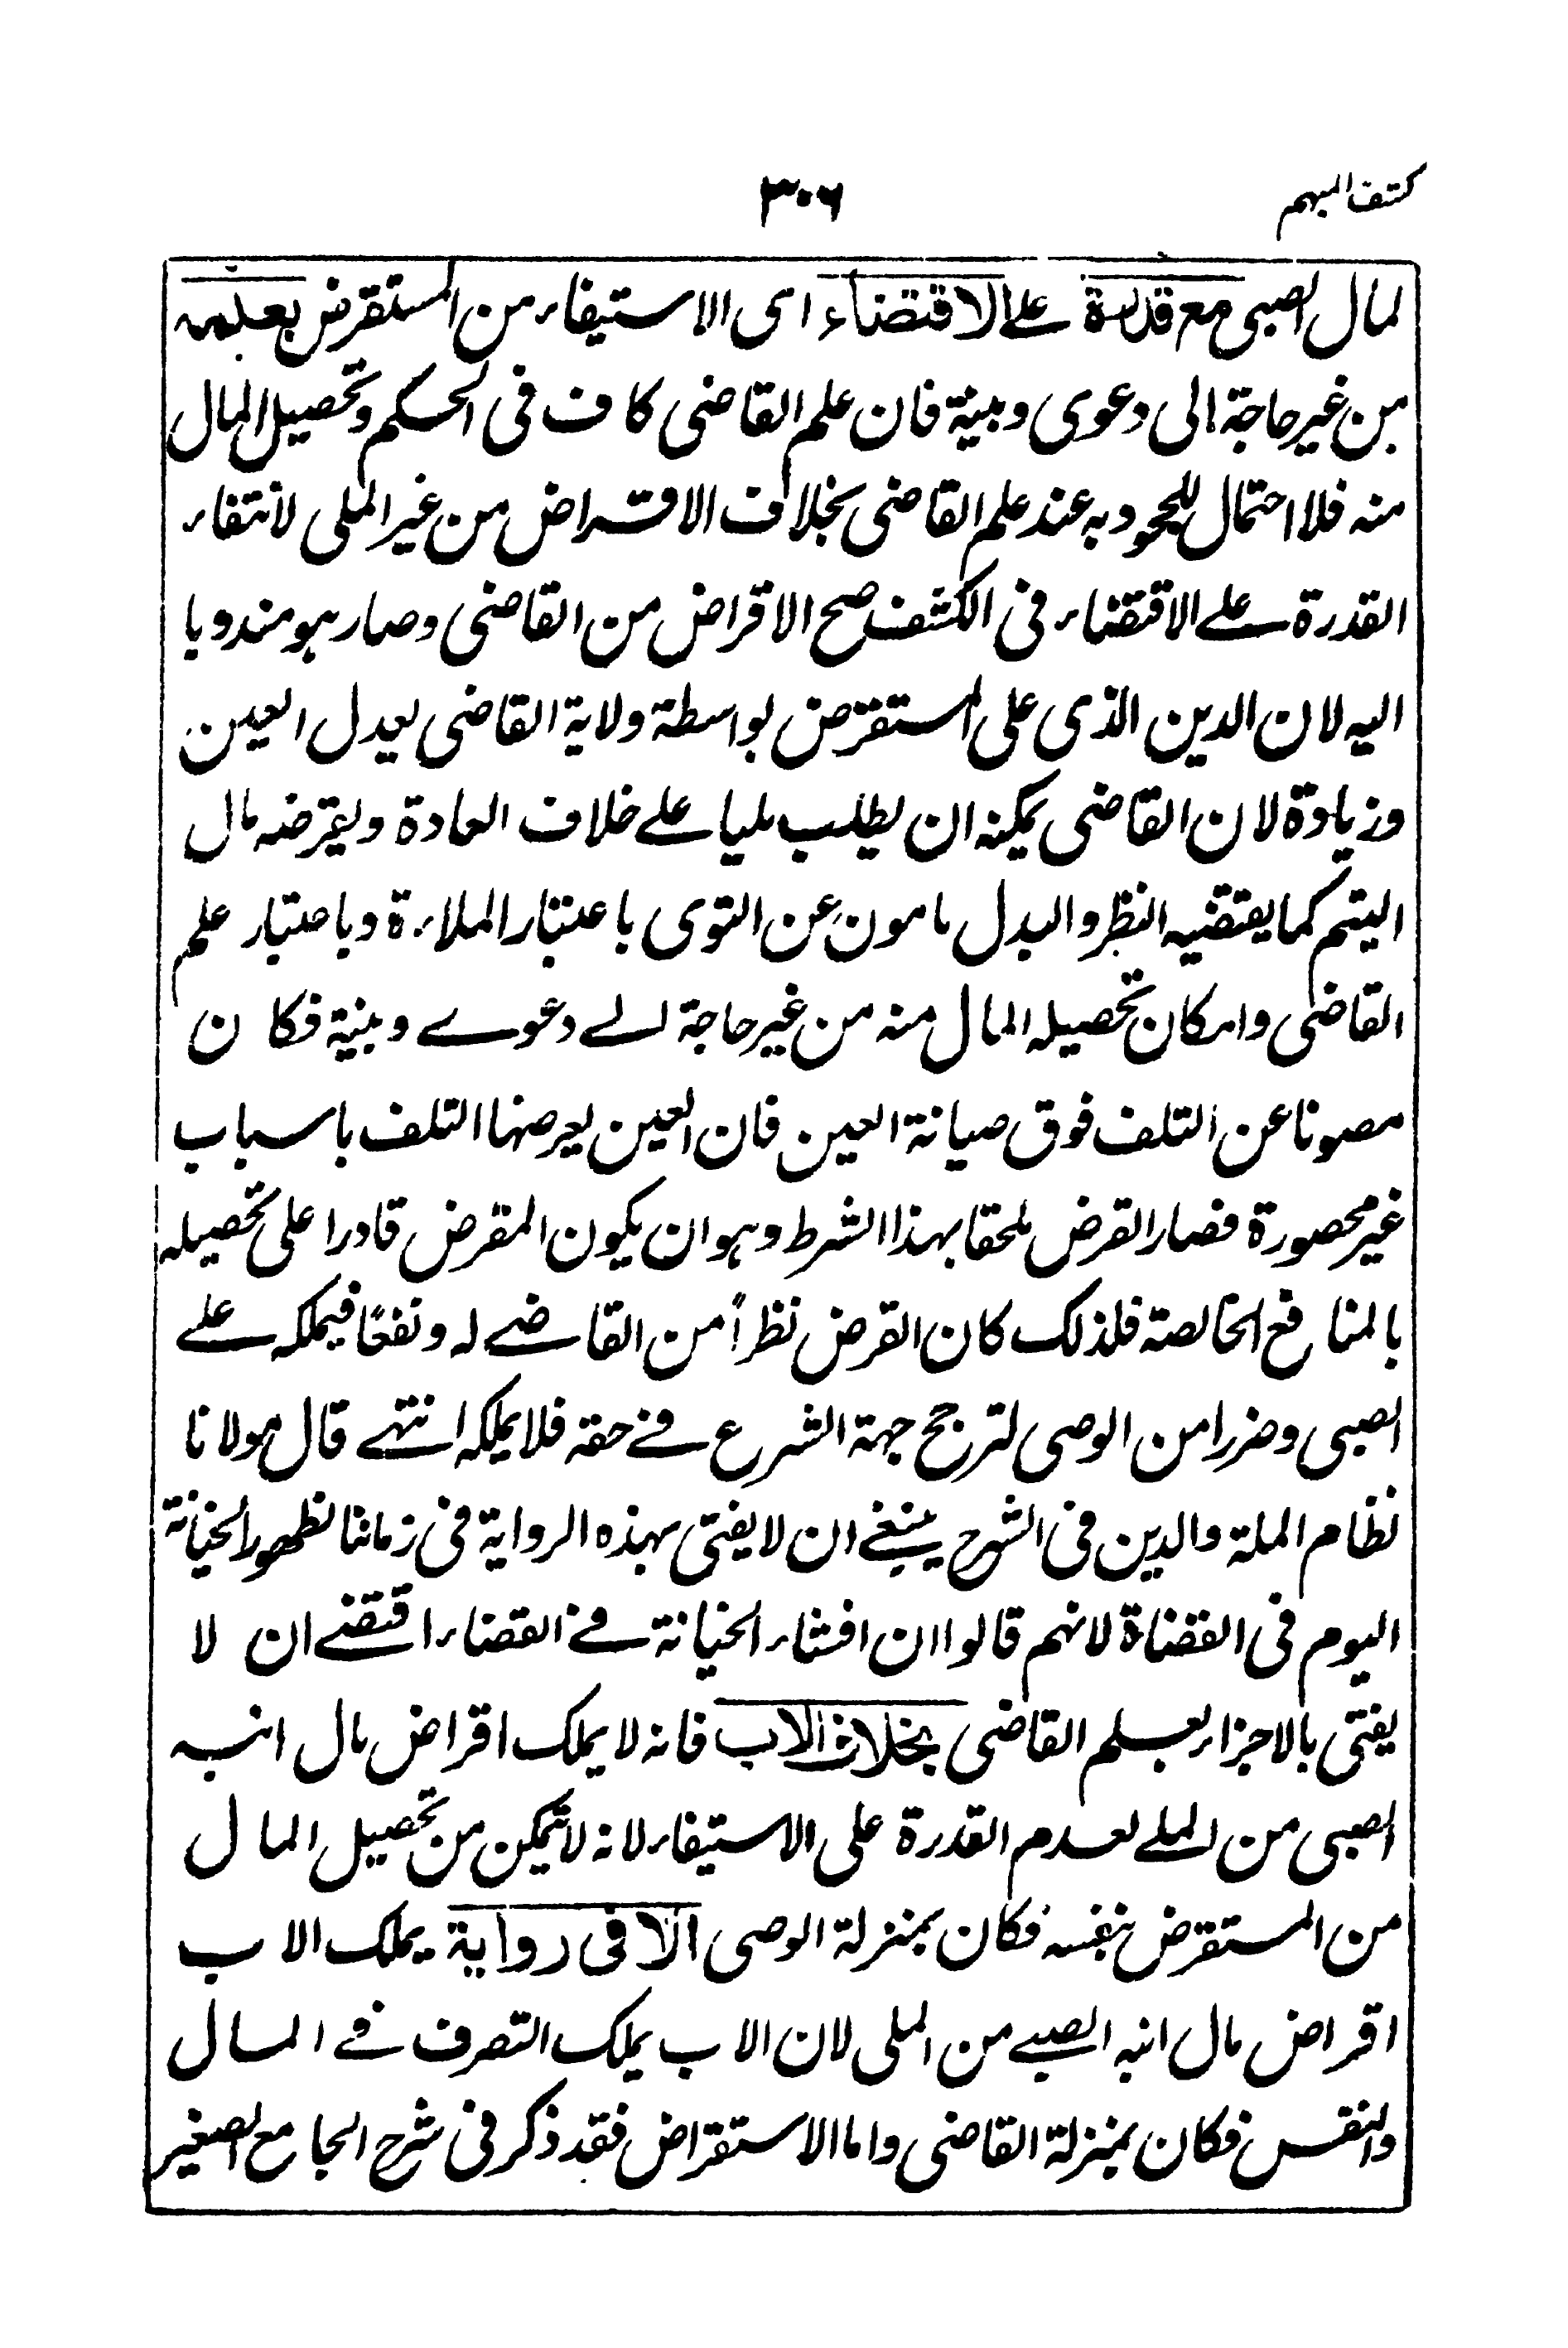 كشف المبهم
٣٠٦
لمال الصبى مع قدرته على الاقتضاء اى الاستيفاء من المستقرض بعلمه
من غير حاجة الى دعوى وبينة فان علم القاضى كاف فى الحكم وتحصيل المال
منه فلا احتمال للجحود به عند علم القاضى بخلاف الاقراض من غير الملى لانتفاء
القدرة على الاقتضاء فى الكشف صح الاقراض من القاضى وصار هو مندوبا
اليه لان الدين الذى على المستقرض بواسطة ولاية القاضى يعدل العين
وزيادة لان القاضى يمكنه ان يطلب مليا على خلاف العادة ويقرضه مال
اليتم كما يقتضيه النظر والبدل مامون عن التوى باعتبار الملاءة وباعتبار علم
القاضى وامكان تحصيله المال منه من غير حاجة الى دعوى وبينة فكان
مصونا عن التلف فوق صيانة العين فان العين يعرضها التلف باسباب
غير محصورة فصار القرض ملحقا بهذا الشرط وهو ان يكون المقرض قادرا على تحصيله
بالمنافع الخالصة فلذلك كان القرض نظراً من القاضى له ونفعًا فيملكه على
الصبى وضررا من الوصى لترجح جهة الشرع فى حقه فلا يملكه انتهى قال مولانا
نظام الملة والدين فى الشرح ينبغى ان لا يفتى بهذه الرواية فى زماننا لظهور الخيانة
اليوم فى القضاة لانهم قالوا ان افشاء الخيانة فى القضاء اقتضى ان لا
يفتى بالاجزاء بعلم القاضى بخلاف الاب فانه لا يملك اقراض مال ابنه
الصبى من الملى لعدم القدرة على الاستيفاء لانه لا يتمكن من تحصيل المال
من المستقرض بنفسه فكان بمنزلة الوصى الا فى رواية يملك الاب
اقراض مال ابنه الصبى من الملى لان الاب يملك التصرف فى المال
والنفس فكان بمنزلة القاضى واما الاستقراض فقد ذكر فى شرح الجامع الصغير